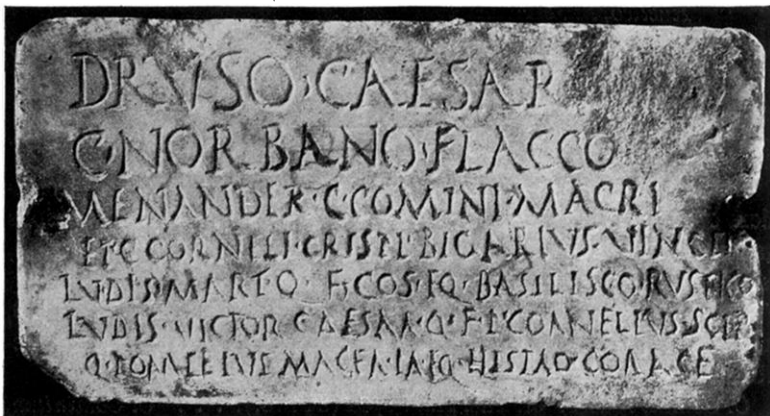 DRVSO · CAESAR
C NORBANO · FLACCO
MENANDER · C · COMINI · MACRI
ET C CORNELI · CRISPI · BIGARIVS · VINCIT ·
LVDIS · MART · Q · F · COS · EQ · BASILISCO · RVSTICO
LVDIS · VICTOR CAESAR · Q · F · P · CORNELIVS · SCIP
Q · POMPEIVS MACER · EQ · HISTRO · CORACE